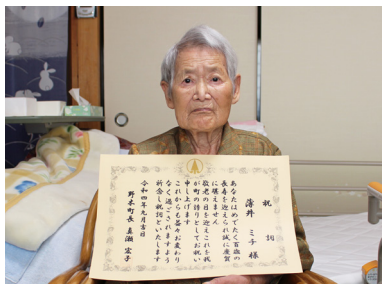 祝詞
薄井 ミチ 様
あなたはめでたく百歳の
長寿を迎えられ誠に慶賀
に堪えません
敬老の日を迎えこれを我
が町の誇りとしてお祝い
申し上げます
これからも益々お変わり
なく過ごされますよう
祈念し祝詞といたします
令和四年九月吉日
野木町長 真瀬 宏子